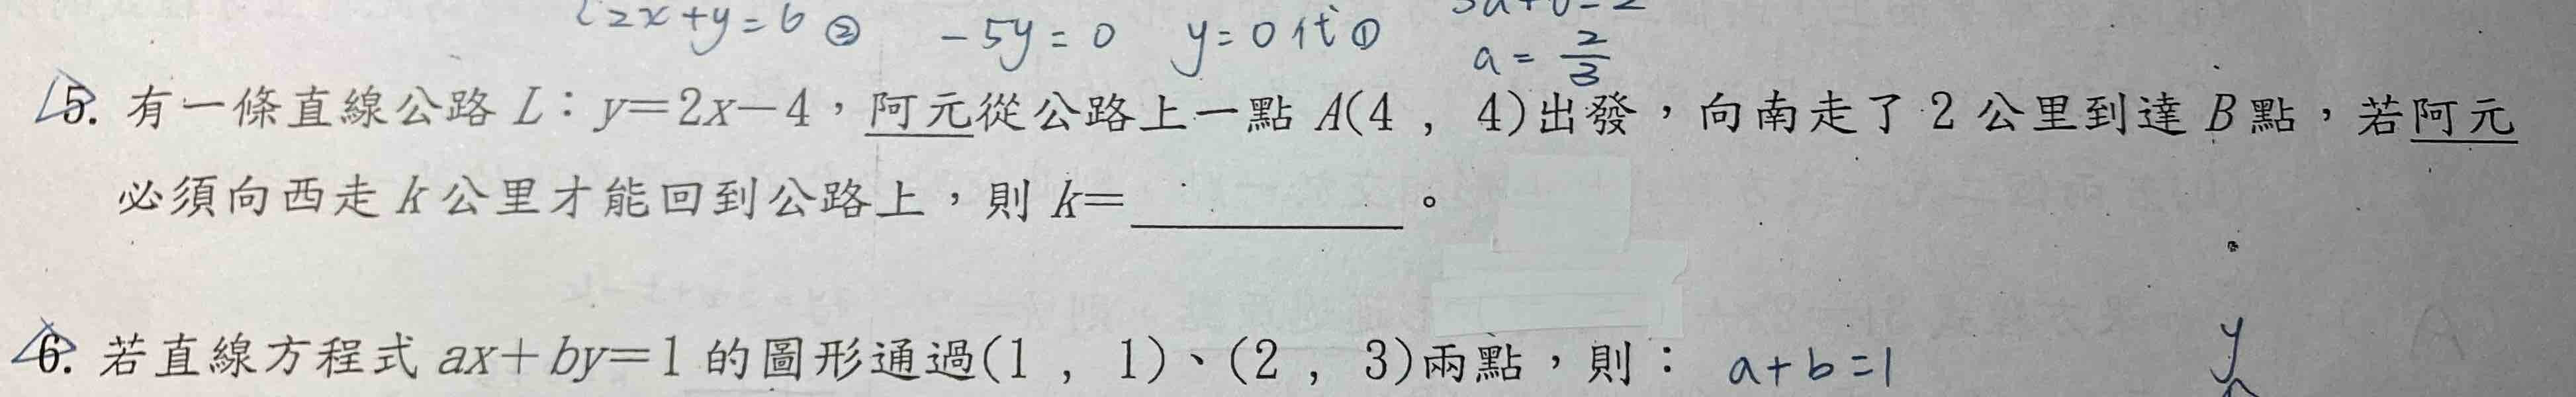 2x+y=6 ② -5y=0 y=0代①
a=2/3
5. 有一條直線公路 L：y=2x-4，阿元從公路上一點 A(4 , 4)出發，向南走了 2 公里到達 B 點，若阿元
必須向西走 k 公里才能回到公路上，則 k=__________。
6. 若直線方程式 ax+by=1 的圖形通過(1 , 1)、(2 , 3)兩點，則： a+b=1
y